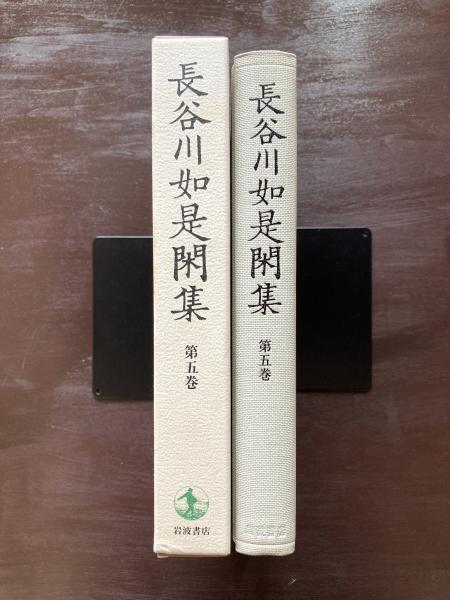 長谷川如是閑集
第五巻
岩波書店
長谷川如是閑集
第五巻
岩波書店